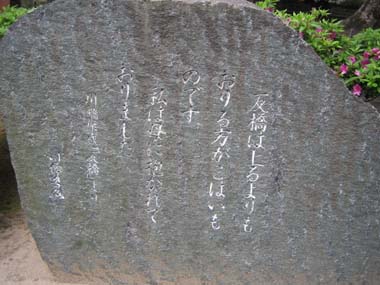 反橋は上るよりも
おりる方がこはいも
のです
私は母に抱かれて
おりました
川端康成「反橋」より